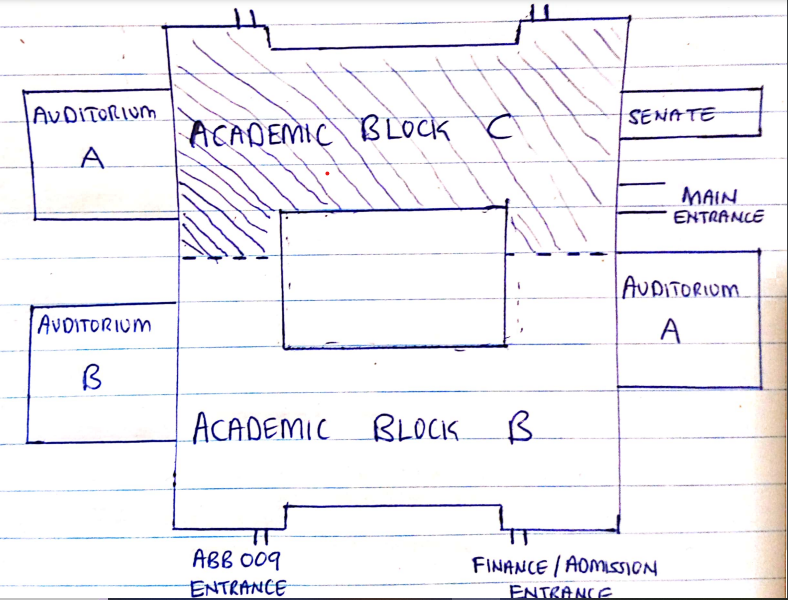 AUDITORIUM
A
ACADEMIC BLOCK C
SENATE
MAIN
ENTRANCE
AUDITORIUM
A
AUDITORIUM
B
ACADEMIC BLOCK B
ABB 009
ENTRANCE
FINANCE / ADMISSION
ENTRANCE